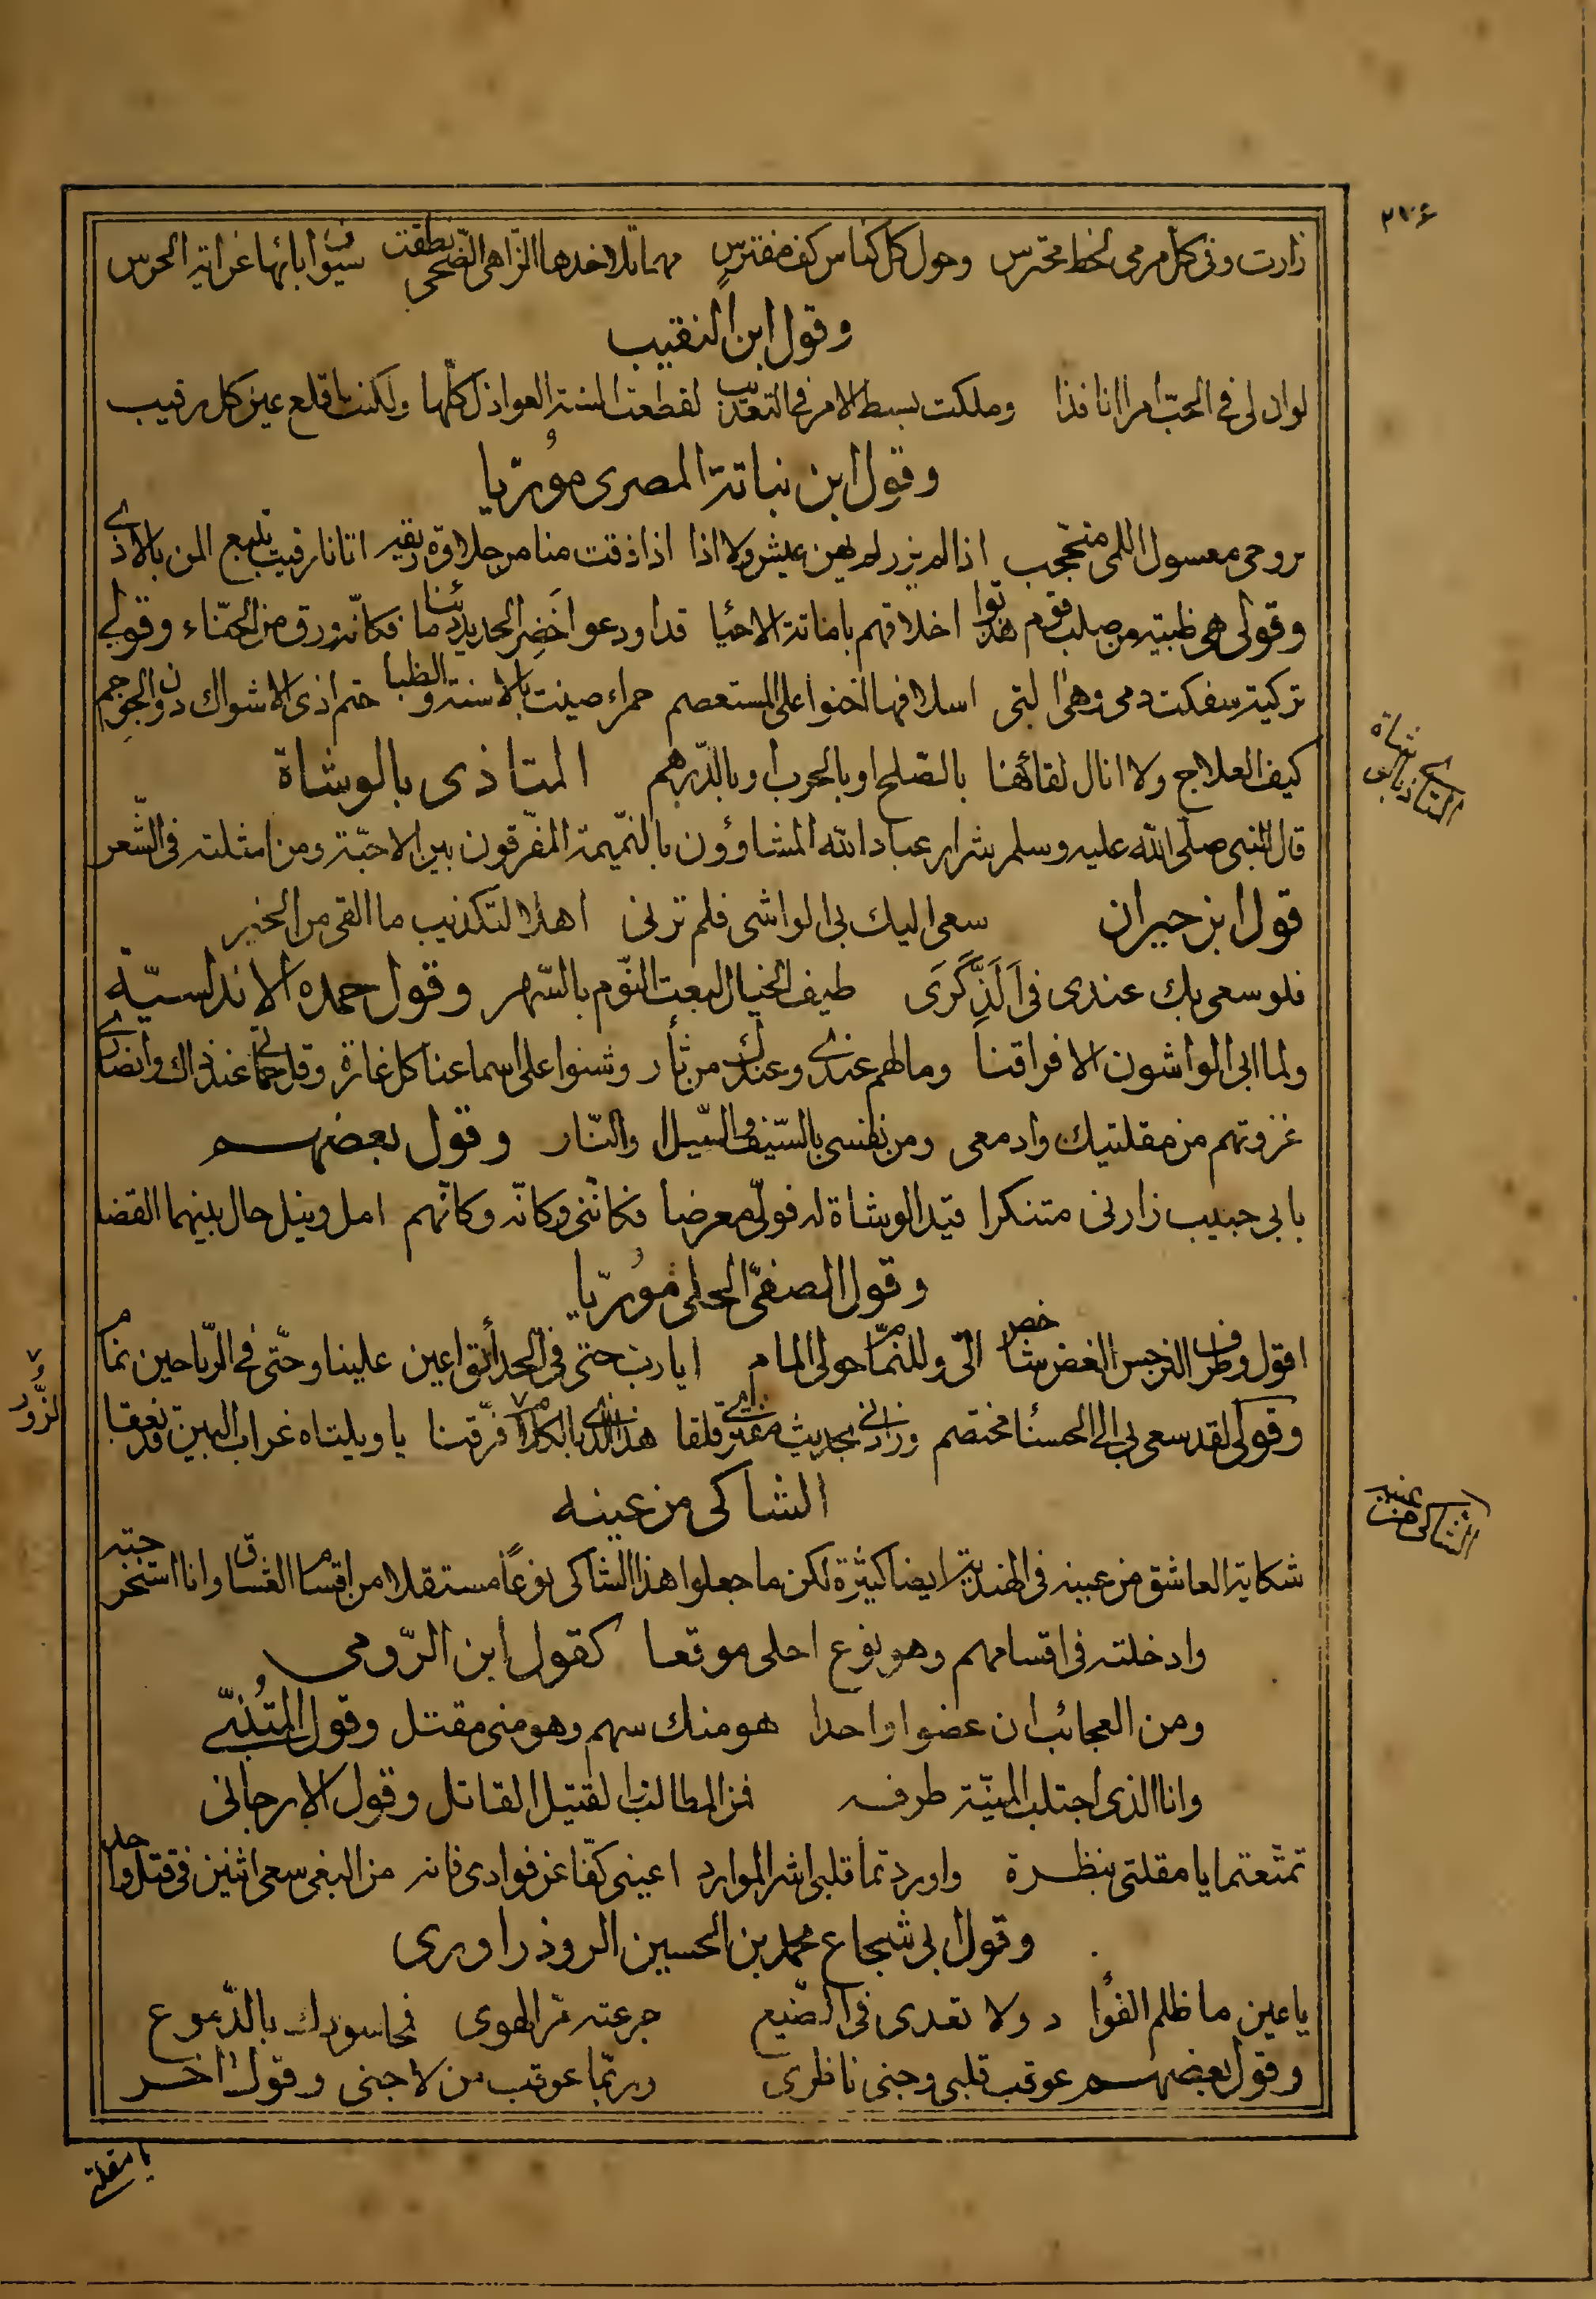 ٢٧٦
زارت وفى كل مرمى لحظ محترس وحول كل كناس كف مفترس مهما تلا خدها الزاهى الضحى نطقت سيوف ابائها عن اية الحرس
وقول ابن النقيب
لو ان لى فى الحب امرا نافذا وملكت بسط الامر فى التعذيب لقطعت السنة العواذل كلها ولكنت اقلع عين كل رقيب
وقول ابن نباتة المصرى مُورّيا
بروحى معسول اللمى متحجب اذا لم يزر لم يهن عيش ولا اذا اذا ذقت منا من حلاوة اتانا رقيب يتبع المن بالاذى
وقولى هى ظبية من صلب قوم هذبوا اخلاقهم باماتة الاحيا قد اودعوا اخضر الحديد دمائنا فكانه ورق من الحناء وقولى
تركية سفكت دمى وهى التى اسلافها اتخنوا على المستعصم حمراء صينت بالاسنة والظبا ختم اذى الاشواك دون الحوجم
كيف العلاج ولا انال لقائها بالصلح او بالحرب او بالدرهم المتاذى بالوشاة
المتاذى بالوشاة
قال النبى صلى الله عليه وسلم شرار عباد الله المشاؤون بالنميمة المفرقون بين الاحبة ومن امثلته فى الشعر
قول ابن حيران سعى اليك بى الواشى فلم ترنى اهلا لتكذيب ما القى من الخبر
فلو سعى بك عندى فى اَلَذِّ كَرَى طيف الخيال لبعت النوم بالسهر وقول حمده الاندلسيّة
ولما ابى الواشون الا فراقنا وما لهم عندى وعندك من ثأر وشنوا على اسماعنا كل غارة وقل حماتى عند ذاك وانصارى
غزوتهم من مقلتيك وادمعى ومن نفسى بالسيف والسيل والنار وقول بعضهم
بابى حبيب زارنى متنكرا فبدا الوشاة له فولى معرضا فكاننى وكانه وكانهم امل ونيل حال بينهما القضا
وقول الصفى الحلى مُورّيا
اقول وطرف النرجس الغض شاخص الى وللنمام حولى المام ايا رب حتى فى الحدائق اعين علينا وحتى فى الرياحين نمام
وقولى لقد سعى بى الى الحسنا مختصم وزادنى بحديث قلقا هذا الذى بالكلام الزُّور فرقنا يا ويلتاه غراب البين قد نعقا
الشاكى من عينه
الشاكى من عينه
شكاية العاشق من عينه فى الهندية ايضا كثيرة لكن ما جعلوا هذا الشاكى نوعًا مستقلا من اقسام العشاق وانا استخرجته
وادخلته فى اقسامهم وهو نوع احلى موقعا كقول ابن الرّومى
ومن العجائب ان عضوا واحدا هو منك سهم وهو منى مقتل وقول المتنبّى
وانا الذى اجتلب المنيّة طرفه فمن المطالب لقتيل القاتل وقول الارجانى
تمتعتما يا مقلتى بنظرة واوردتما قلبى اشر الموارد اعينى كفا عن فوادى فانه من البغى سعى اثنين فى قتل واحد
وقول ابى شجاع محمد بن الحسين الروذراورى
يا عين ما ظلم الفؤا د ولا تعدى فى الصنيع جرعته مر الهوى فمحا سوادك بالدّموع
وقول بعضهم عوقب قلبى وجنى ناظرى وربما عوقب من لا جنى وقول اخر
يا مقلتى